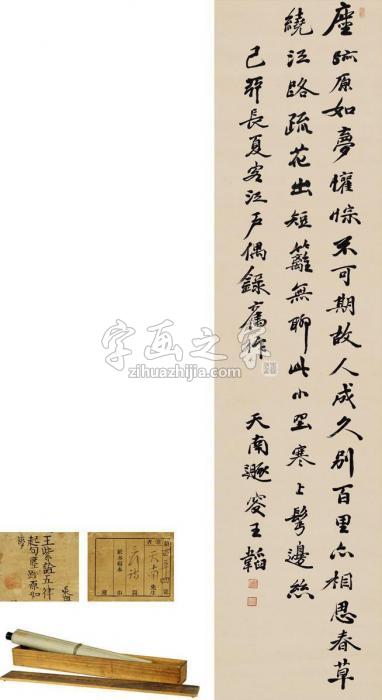 塵跡原如夢懽悰不可期故人成久別百里亦相思春草
繞江路疏花出短籬無聊此小聖寒上髩邊絲
己卯長夏客江戶偶錄舊作
天南遯叟王韜
字画之家
zihuazhijia.com
王紫詮五律
起句塵跡原如
夢
天南
先生